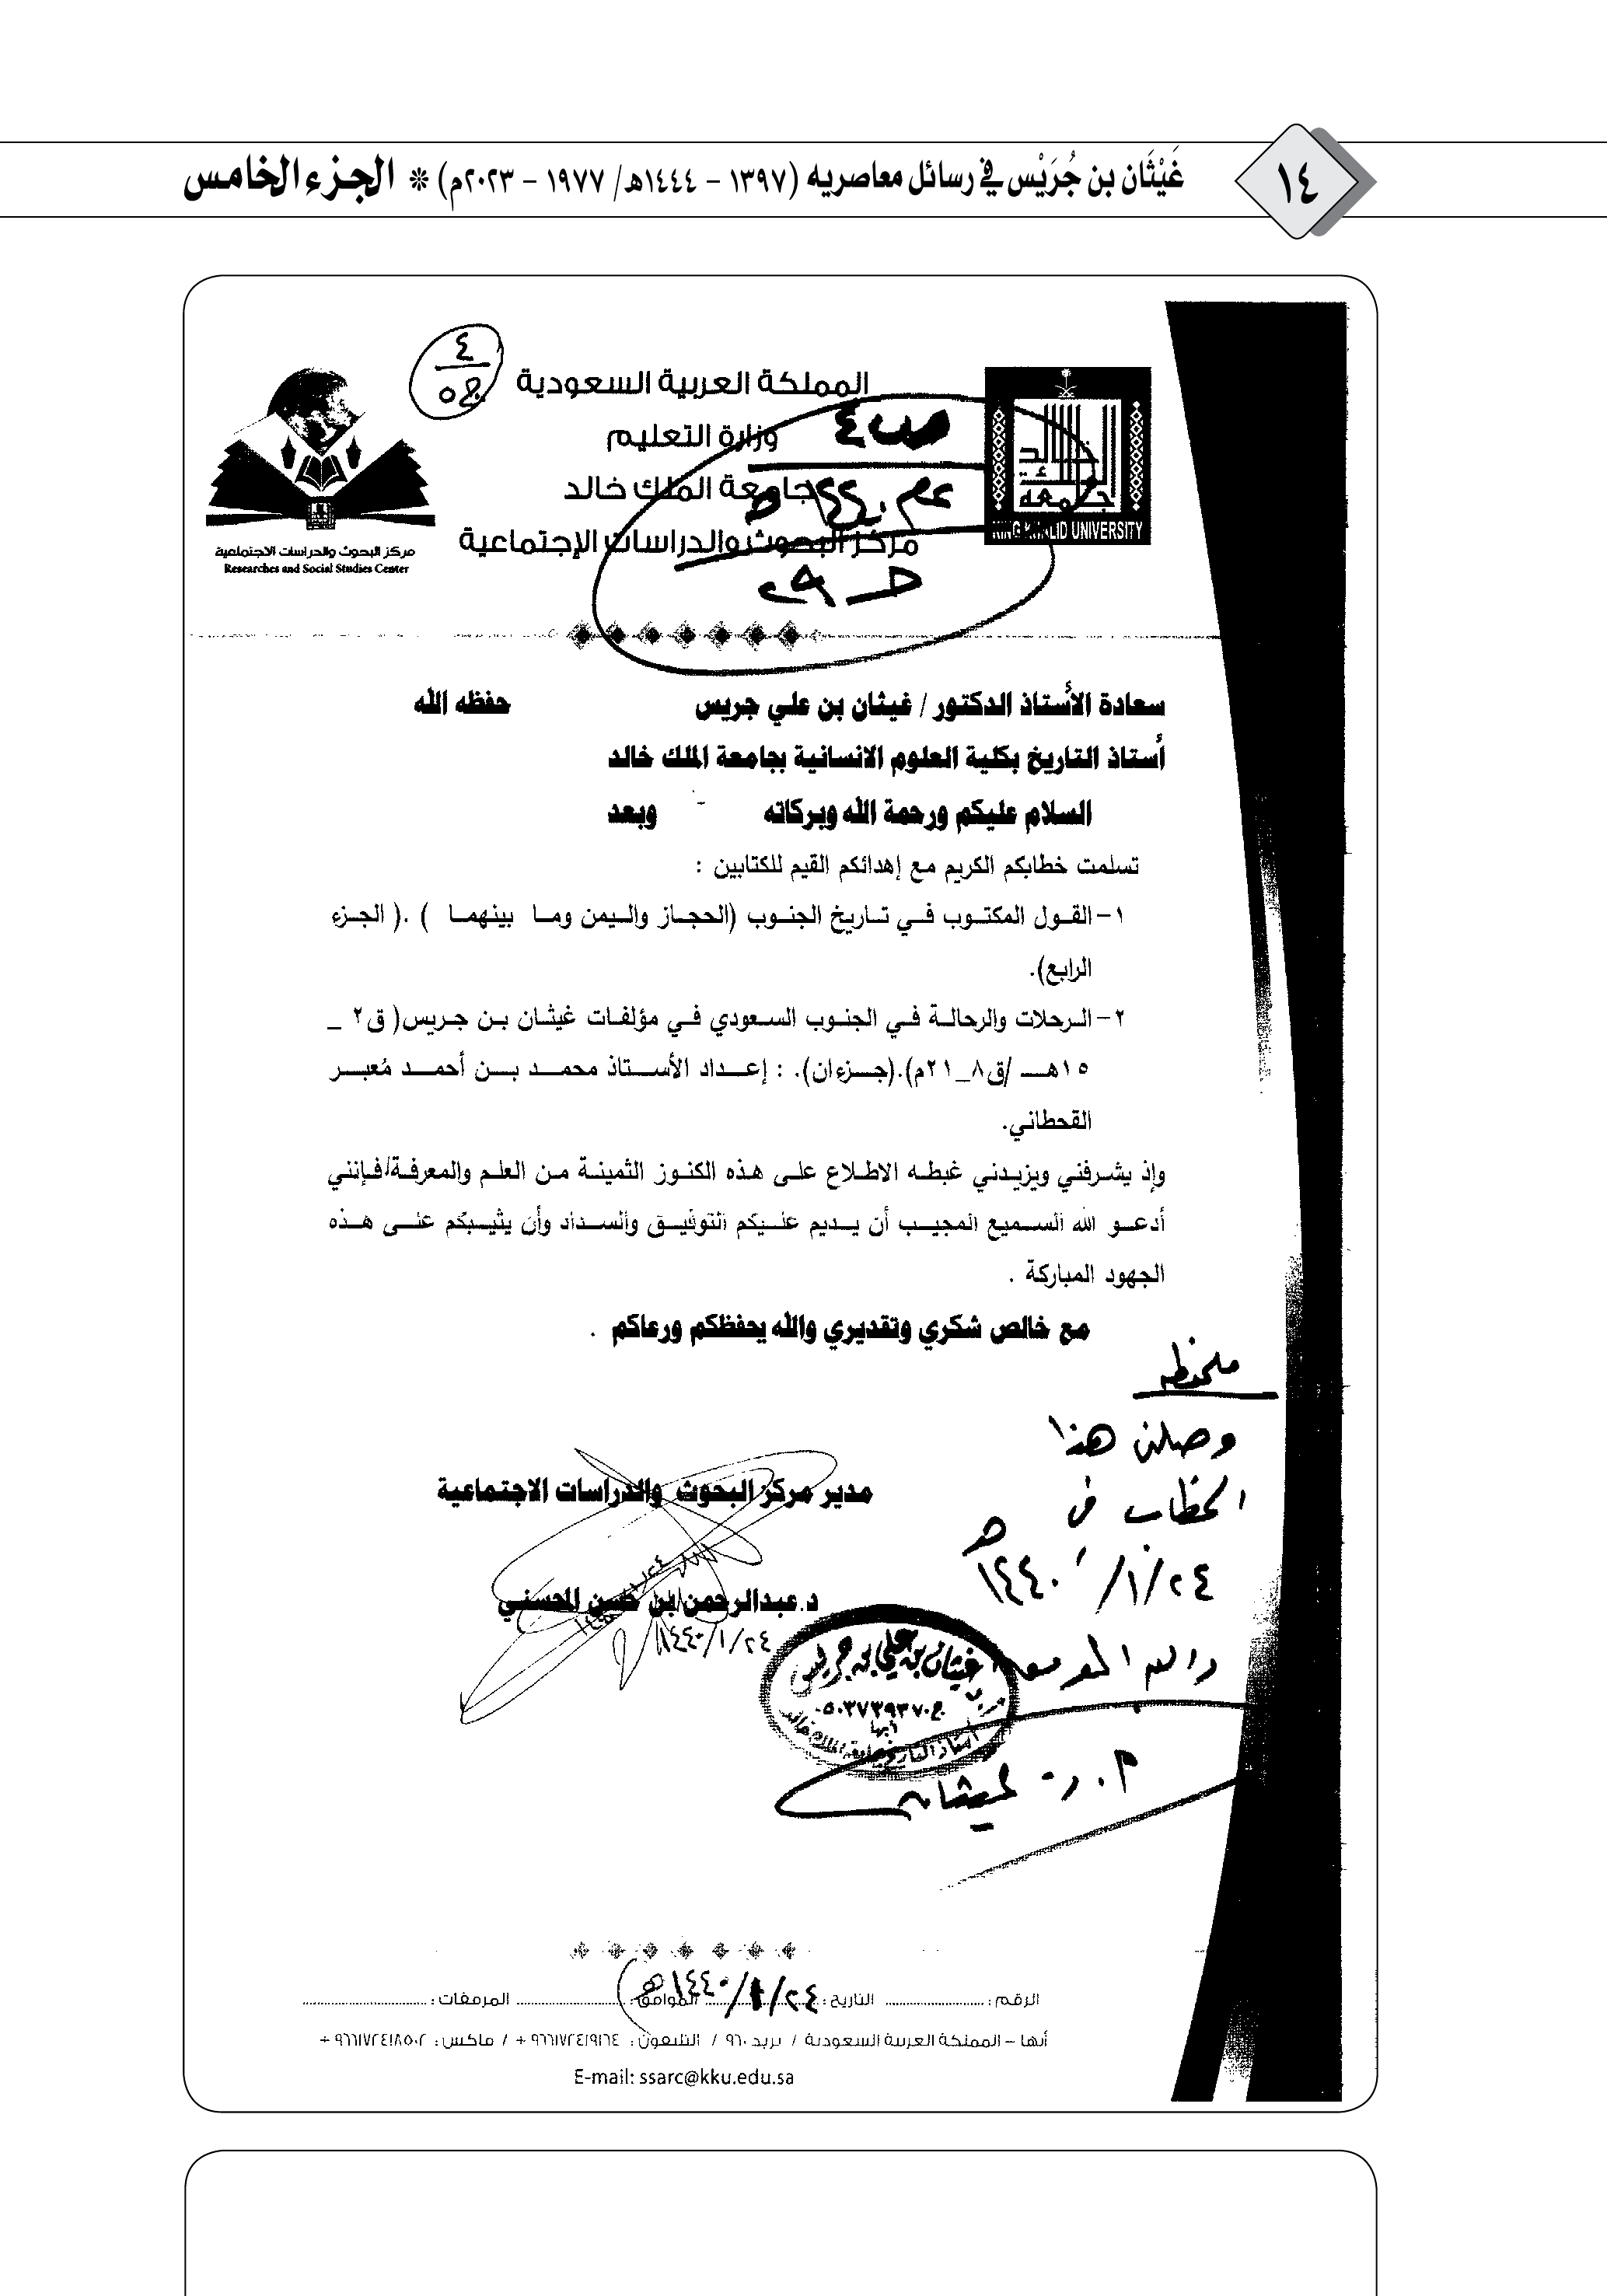 ١٤
غَيْثَان بن جُرَيْس في رسائل معاصريه (١٣٩٧ - ١٤٤٤هـ/ ١٩٧٧ - ٢٠٢٣م) * الجزء الخامس
المملكة العربية السعودية
وزارة التعليم
جامعة الملك خالد
مركز البحوث والدراسات الإجتماعية
KING KHALID UNIVERSITY
مركز البحوث والدراسات الاجتماعية
Researches and Social Studies Center
سعادة الأستاذ الدكتور / غيثان بن علي جريس حفظه الله
أستاذ التاريخ بكلية العلوم الانسانية بجامعة الملك خالد
السلام عليكم ورحمة الله وبركاته وبعد
تسلمت خطابكم الكريم مع إهدائكم القيم للكتابين :
١- القول المكتوب في تاريخ الجنوب (الحجاز واليمن وما بينهما ) .( الجزء
الرابع).
٢- الرحلات والرحالة في الجنوب السعودي في مؤلفات غيثان بن جريس( ق٢ _
١٥هـ /ق٨_٢١م).(جزءان). : إعداد الأستاذ محمد بن أحمد مُعبر
القحطاني.
وإذ يشرفني ويزيدني غبطه الاطلاع على هذه الكنوز الثمينة من العلم والمعرفة/فإنني
أدعو الله السميع المجيب أن يديم عليكم التوفيق والسداد وأن يثيبكم على هذه
الجهود المباركة .
مع خالص شكري وتقديري والله يحفظكم ورعاكم .
ملحوظه
وصلني هذا
الخطاب في
١٤٤٠/١/٢٤هـ
مدير مركز البحوث والدراسات الاجتماعية
د.عبدالرحمن بن حسن المحسني
١٤٤٠/١/٢٤
غيثان بن علي بن جريس
أبها
أ.د. غيثان
الرقم : التاريخ : ١٤٤٠/١/٢٤هـ الموافق : المرفقات :
أبها - المملكة العربية السعودية / بريد ٩٦٠ / التليفون : ٩٦٦١٧٢٤١٩١٦٤ + / فاكس : ٩٦٦١٧٢٤١٨٥٠٢ +
E-mail: ssarc@kku.edu.sa